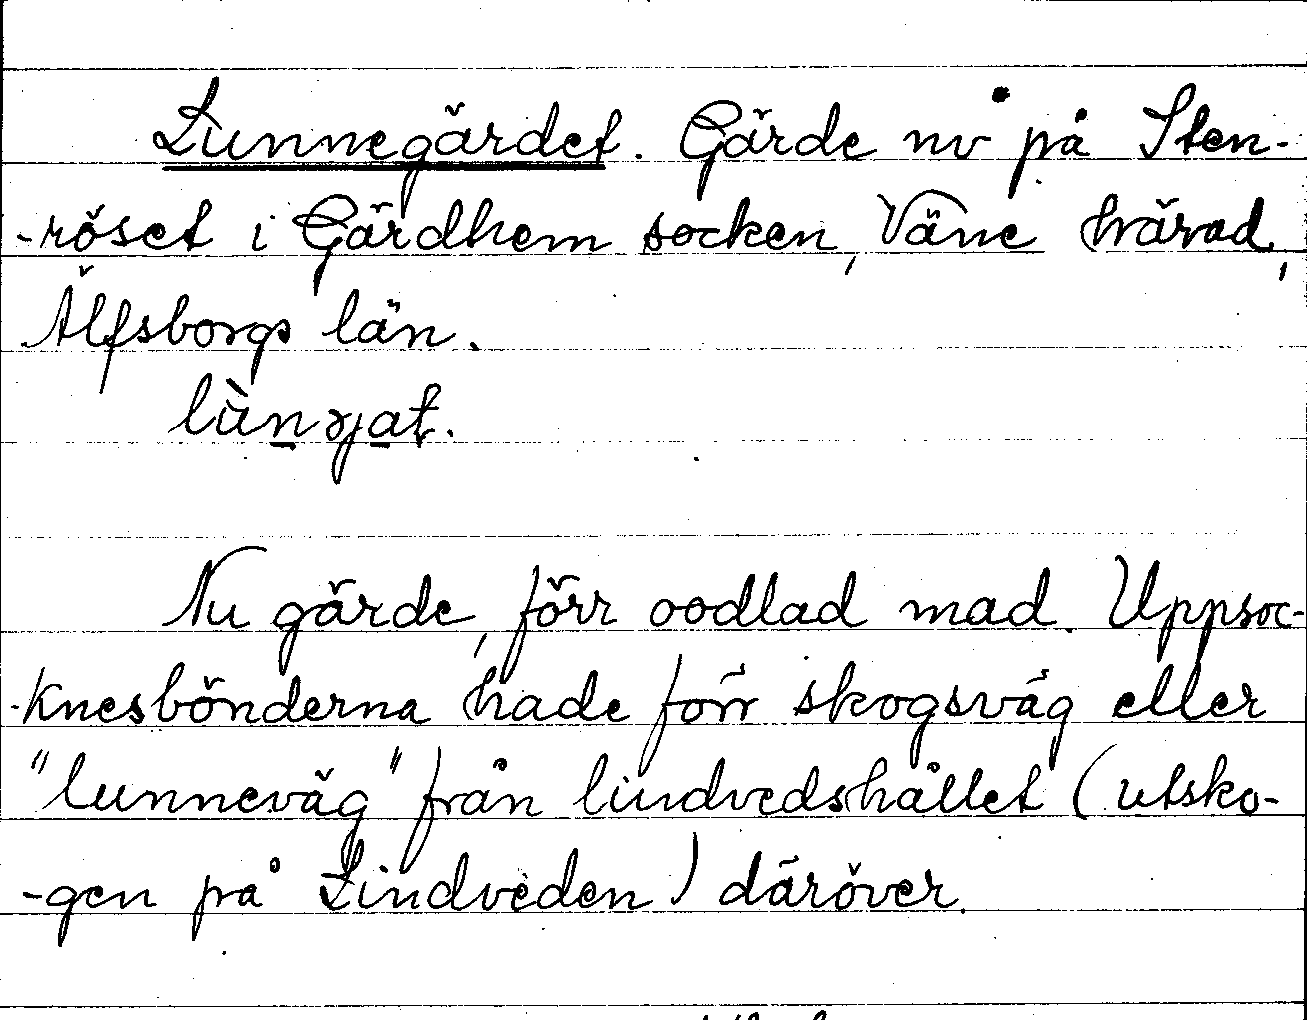 Lunnegärdet. Gärde nv på Sten-
-röset i Gärdhem socken, Väne härad,
Älfsborgs län.
Nu gärde, förr oodlad mad. Uppsoc-
-knesbönderna hade förr skogsväg eller
"lunneväg" från lindvedshållet (utsko-
-gen på Lindveden) däröver.